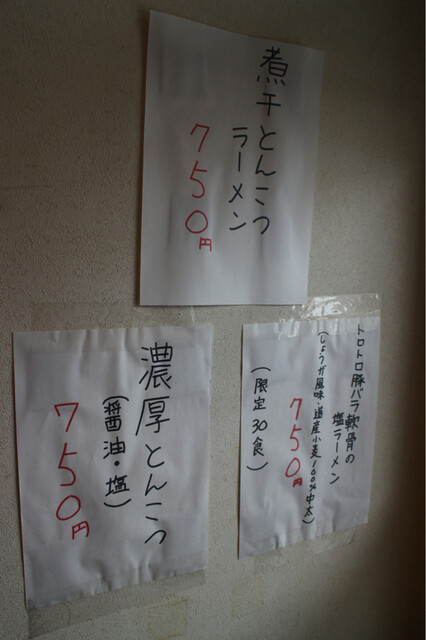 煮干とんこつ
ラーメン
750円
濃厚とんこつ
(醤油・塩)
750円
トロトロ豚バラ軟骨の
塩ラーメン
(しょうが風味・道産小麦100%中太)
750円
(限定30食)